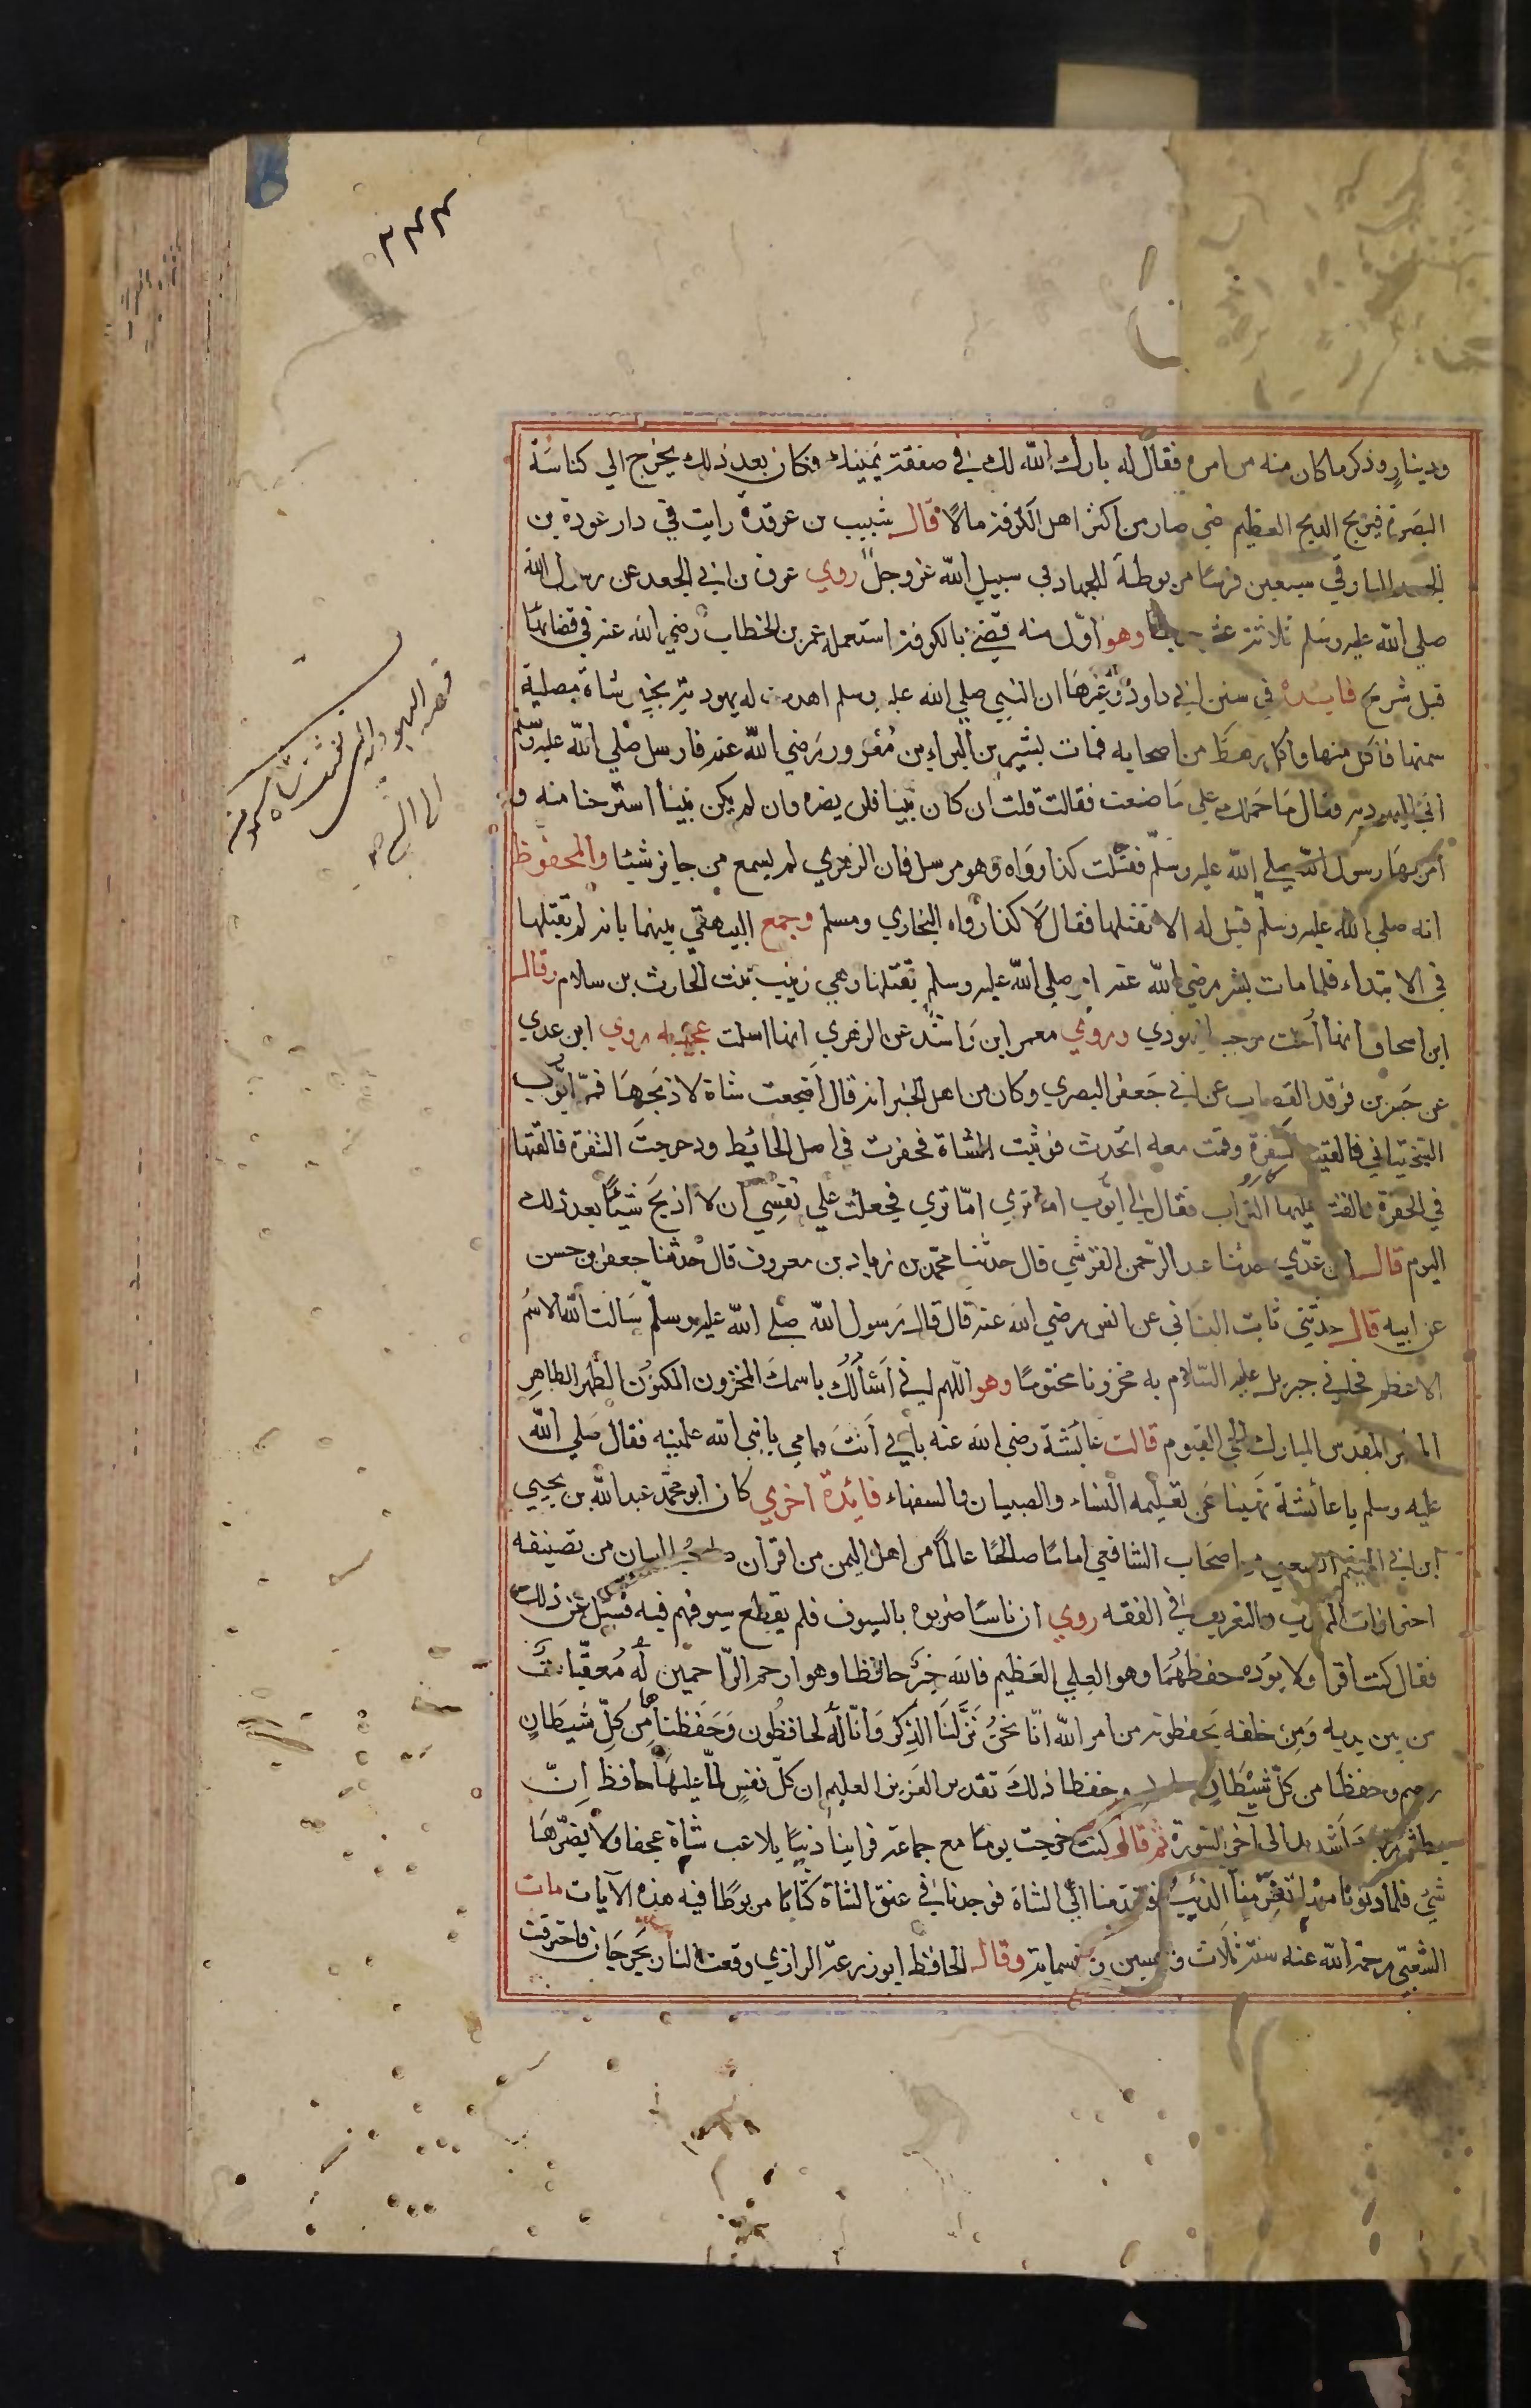 ٣٤٤
ودينار وذكر ما كان منه من امره فقال له بارك الله لك في صفقة يمينك فكان بعد ذلك يخرج الي كناسة
البصرة فيربح الربح العظيم حتي صار من اكثر اهل الكوفة مالا قال شبيب بن غرقدة رايت في دار عروة بن
الجعد البارقي سبعين فرسا مربوطة للجهاد في سبيل الله عز وجل روي عروة بن ابي الجعد عن رسول الله
صلي الله عليه وسلم ثلاثة عشر حديثا وهو اول من قضي بالكوفة استعمله عمر بن الخطاب رضي الله عنه في قضائها
قبل شريح فايدة في سنن ابي داود وغيرها ان النبي صلي الله عليه وسلم اهدت له يهودية بخيبر شاة مصلية
سمتها فاكل منها واكل رهط من اصحابه فمات بشير بن البراء بن معرور رضي الله عنه فارسل صلي الله عليه وسلم
الي اليهودية فقال ما حملك علي ما صنعت فقالت قلت ان كان نبيا فلن يضره وان لم يكن نبيا استرحنا منه و
امر بها رسول الله صلي الله عليه وسلم فقتلت كذا رواه وهو مرسل فان الزهري لم يسمع من جابر شيئا والمحفوظ
انه صلي الله عليه وسلم قيل له الا تقتلها فقال لا كذا رواه البخاري ومسلم وجمع البيهقي بينهما بانه لم يقتلها
في الابتداء فلما مات بشر رضي الله عنه امر صلي الله عليه وسلم بقتلها وهي زينب بنت الحارث بن سلام وقال
ابن اسحاق انها اخت مرحب اليهودي وروي معمر ابن راشد عن الزهري انها اسلمت عجيبه روي ابن عدي
عن جبر بن فرقد القصاب عن ابي جعفر البصري وكان من اهل الخير انه قال اضجعت شاة لاذبحها فمر ايوب
السختياني فالقيت الشفرة وقمت معه اتحدث فوثبت الشاة فحفرت في اصل الحائط ودحرجت الشفرة فالقتها
في الحفرة والقت عليها التراب فقال لي ايوب اما تري اما تري فجعلت علي نفسي ان لا اذبح شيئا بعد ذلك
اليوم قال ابن عدي حدثنا عبد الرحمن القرشي قال حدثنا محمد بن زياد بن معروف قال حدثنا جعفر بن حسن
عن ابيه قال حدثني ثابت البناني عن انس رضي الله عنه قال قال رسول الله صلي الله عليه وسلم سالت الله الاسم
الاعظم فجاءني جبريل عليه السلام به مخزونا مختوما وهو اللهم اني اسألك باسمك المخزون المكنون الطهر الطاهر
المطهر المقدس المبارك الحي القيوم قالت عائشة رضي الله عنه بابي انت وامي يا نبي الله علمنيه فقال صلي الله
عليه وسلم يا عائشة نهينا عن تعليمه النساء والصبيان والسفهاء فائدة اخري كان ابو محمد عبد الله بن يحيي
ابن ابي الهيثم الصعبي من اصحاب الشافعي اماما صالحا عالما من اهل اليمن من اقران صاحب البيان من تصنيفه
احترازات المذهب والتعريف في الفقه روي ان ناسا ضربوه بالسيوف فلم يقطع سيوفهم فيه فسيل عن ذلك
فقال كنت اقرا ولا يؤده حفظهما وهو العلي العظيم فالله خير حافظا وهو ارحم الراحمين له معقبات
من بين يديه ومن خلفه يحفظونه من امر الله انا نحن نزلنا الذكر وانا له لحافظون وحفظناها من كل شيطان
رجيم وحفظا من كل شيطان مارد وحفظا ذلك تقدير العزيز العليم ان كل نفس لما عليها حافظ ان
بطش ربك لشديد الي آخر السورة ثم قال كنت خرجت يوما مع جماعة فراينا ذئبا يلاعب شاة عجفا ولا يضرها
شئ فلما دنونا منها نفر منا الذئب فتقدمنا الي الشاة فوجدنا في عنق الشاة كتابا مربوطا فيه هذه الآيات مات
الشعبي رحمة الله عنه سنة ثلاث وخمسين وخمسماية وقال الحافظ ابو زرعة الرازي وقعت النار بجرجان فاحترقت
قصة اليهودية التي